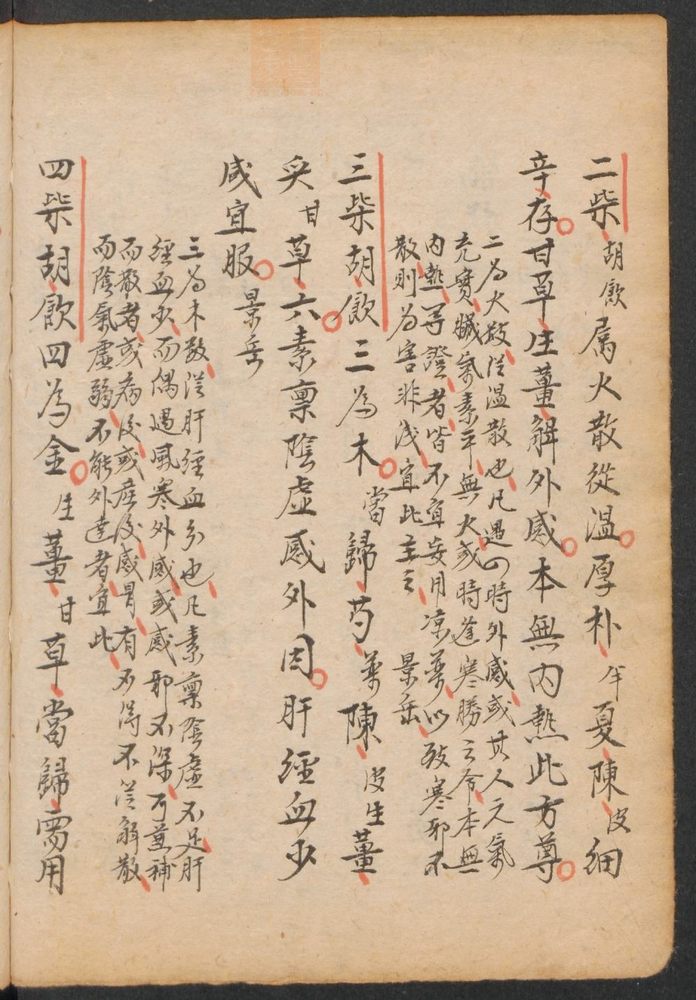 二柴胡飲属火散從溫厚朴半夏陳皮細
辛存甘草生薑解外感本無内熱此方尊
二為火数從溫散也凡遇四時外感或其人元氣
充實臓氣素平無火或時逢寒勝之令本無
内熱等證者皆不宜妄用凉藥以致寒邪不
散則為害非浅宜此主之 景岳
三柴胡飲三為木當歸芍藥陳皮生薑
炙甘草六素禀陰虚感外因肝經血少
咸宜服景岳
三為木数從肝經血分也凡素禀陰虚不足肝
經血少而偶遇風寒外感或感邪不深可兼補
而散者或病後或産後感冒有不得不從解散
而陰氣虚弱不能外達者宜此
四柴胡飲四為金生薑甘草當歸需用